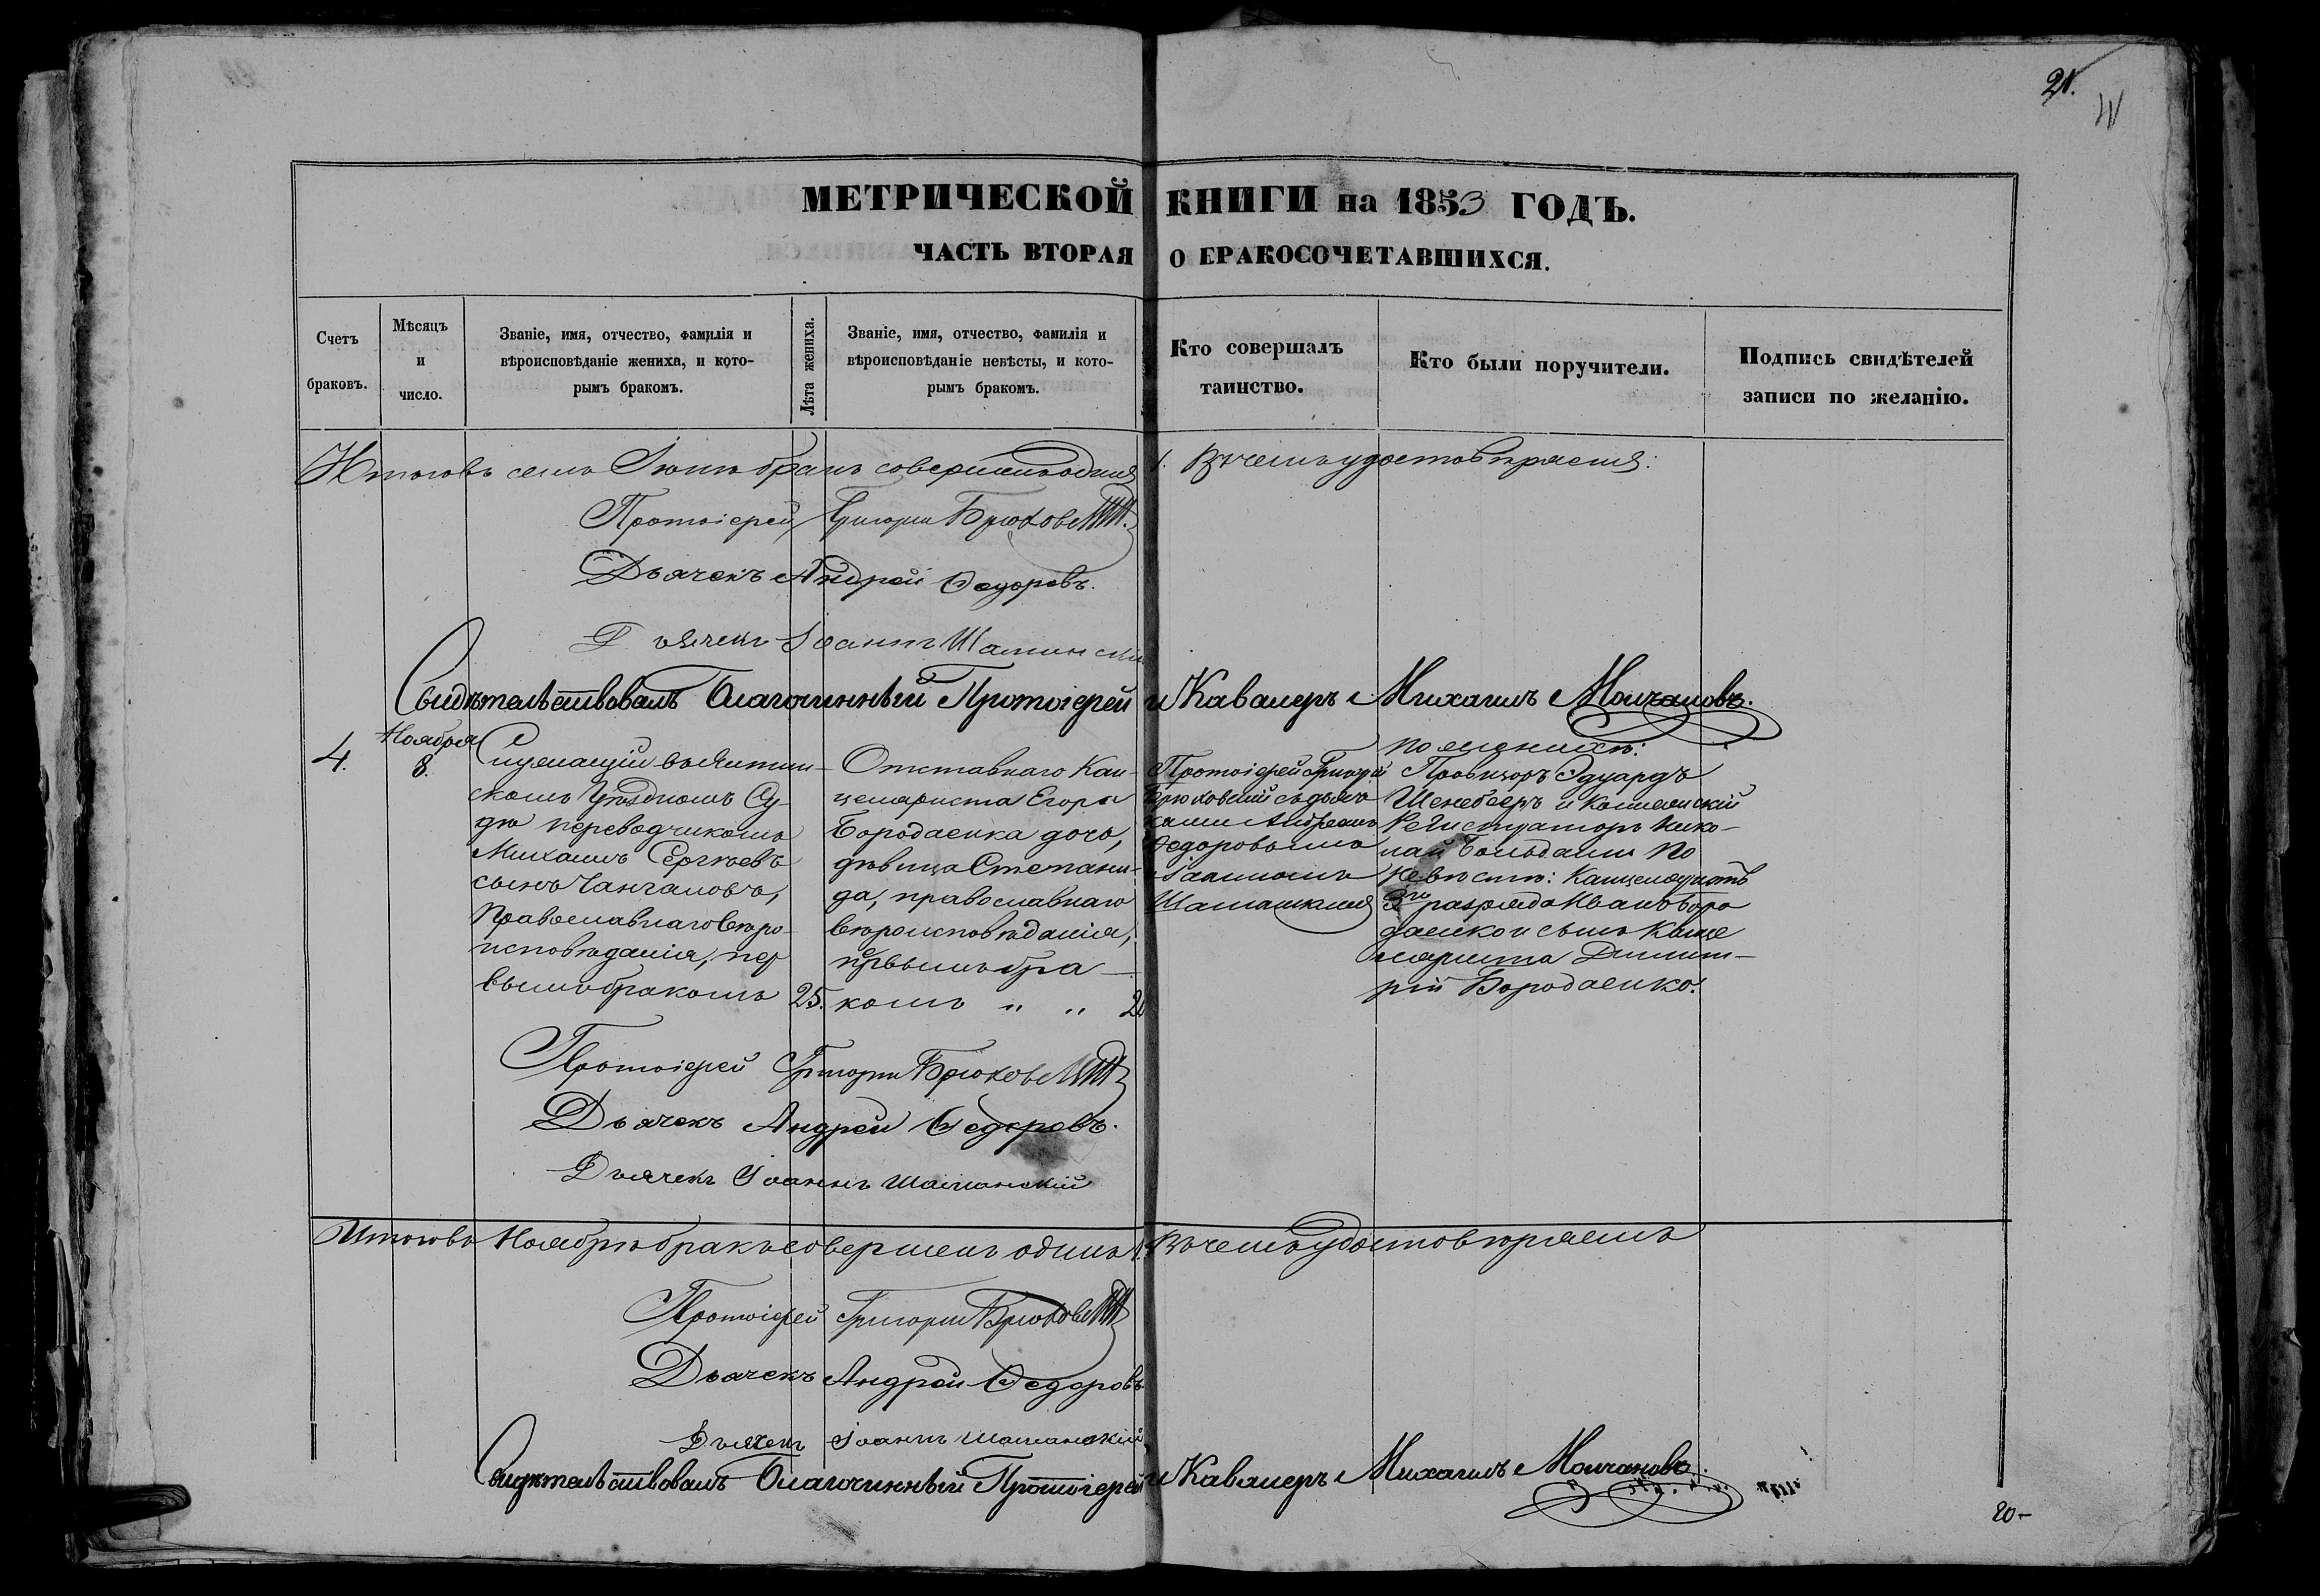 21.
МЕТРИЧЕСКОЙ КНИГИ на 1853 ГОДЪ.
ЧАСТЬ ВТОРАЯ О БРАКОСОЧЕТАВШИХСЯ.
Счетъ
браковъ.
Мѣсяцъ
и
число.
Званіе, имя, отчество, фамилія и
вѣроисповѣданіе жениха, и кото-
рымъ бракомъ.
Лѣта жениха.
Званіе, имя, отчество, фамилія и
вѣроисповѣданіе невѣсты, и кото-
рымъ бракомъ.
Кто совершалъ
таинство.
Кто были поручители.
Подпись свидѣтелей
записи по желанію.
Итого въ семъ бракъ совершенъ одинъ 1. Въ чемъ удостовѣряемъ:
Протоіерей Григорій
Дьячекъ Андрей Ѳедоровъ.
Дьячекъ Іоаннъ
Свидѣтельствовалъ Благочинный Протоіерей и Кавалеръ Михаилъ Молчановъ.
4.
Ноября
8.
Служащій въ
скомъ Уѣздномъ Су-
дѣ переводчикомъ
Михаилъ Сергѣевъ
сынъ
Православнаго вѣро-
исповѣданія, пер
вымъ бракомъ
25.
Отставнаго Кан-
целяриста Егора
Бородаенка дочь,
дѣвица Степани-
да, православнаго
вѣроисповѣданія,
первымъ бра-
комъ " "
Протоіерей Григорій
съ дьяч
ками Андреемъ
Ѳедоровымъ
и Іоанномъ
по женихѣ:
Провизоръ Эдуардъ
и Коллежскій
Регистраторъ Нико-
лай по
невѣстѣ: Канцелярист
3го разряда Иванъ Боро
даенко и сынъ Канце
ляриста Димит-
рій Бородаенко.
Протоіерей Григорій
Дьячекъ Андрей Ѳедоровъ.
Дьячекъ Іоаннъ Шаманскій
Итого въ Ноябрѣ бракъ совершенъ одинъ 1. Въ чемъ удостовѣряемъ
Протоіерей Григорій
Дьячекъ Андрей Ѳедоровъ
Дьячекъ Іоаннъ Шаманскій
Свидѣтельствовалъ Благочинный Протоіерей и Кавалеръ Михаилъ Молчановъ.
20-